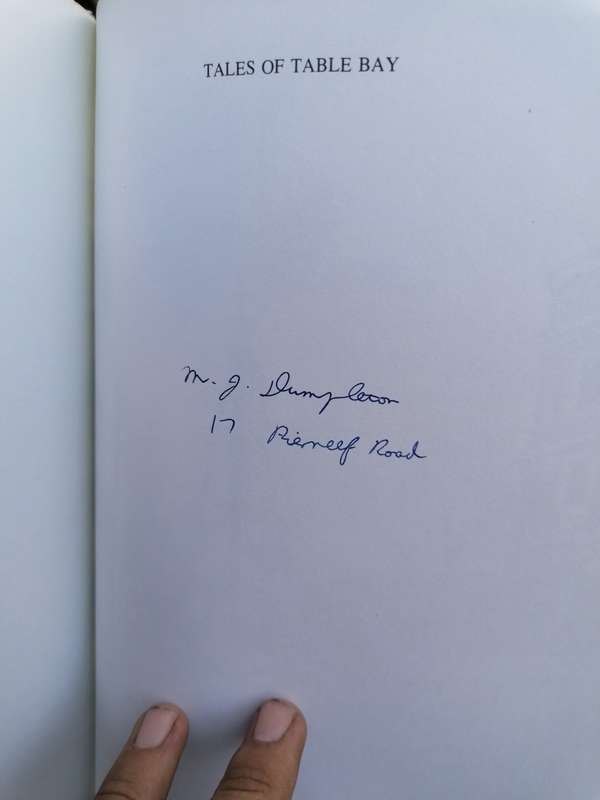 TALES OF TABLE BAY
M. J. Dumpleton
17 Pierneef Road